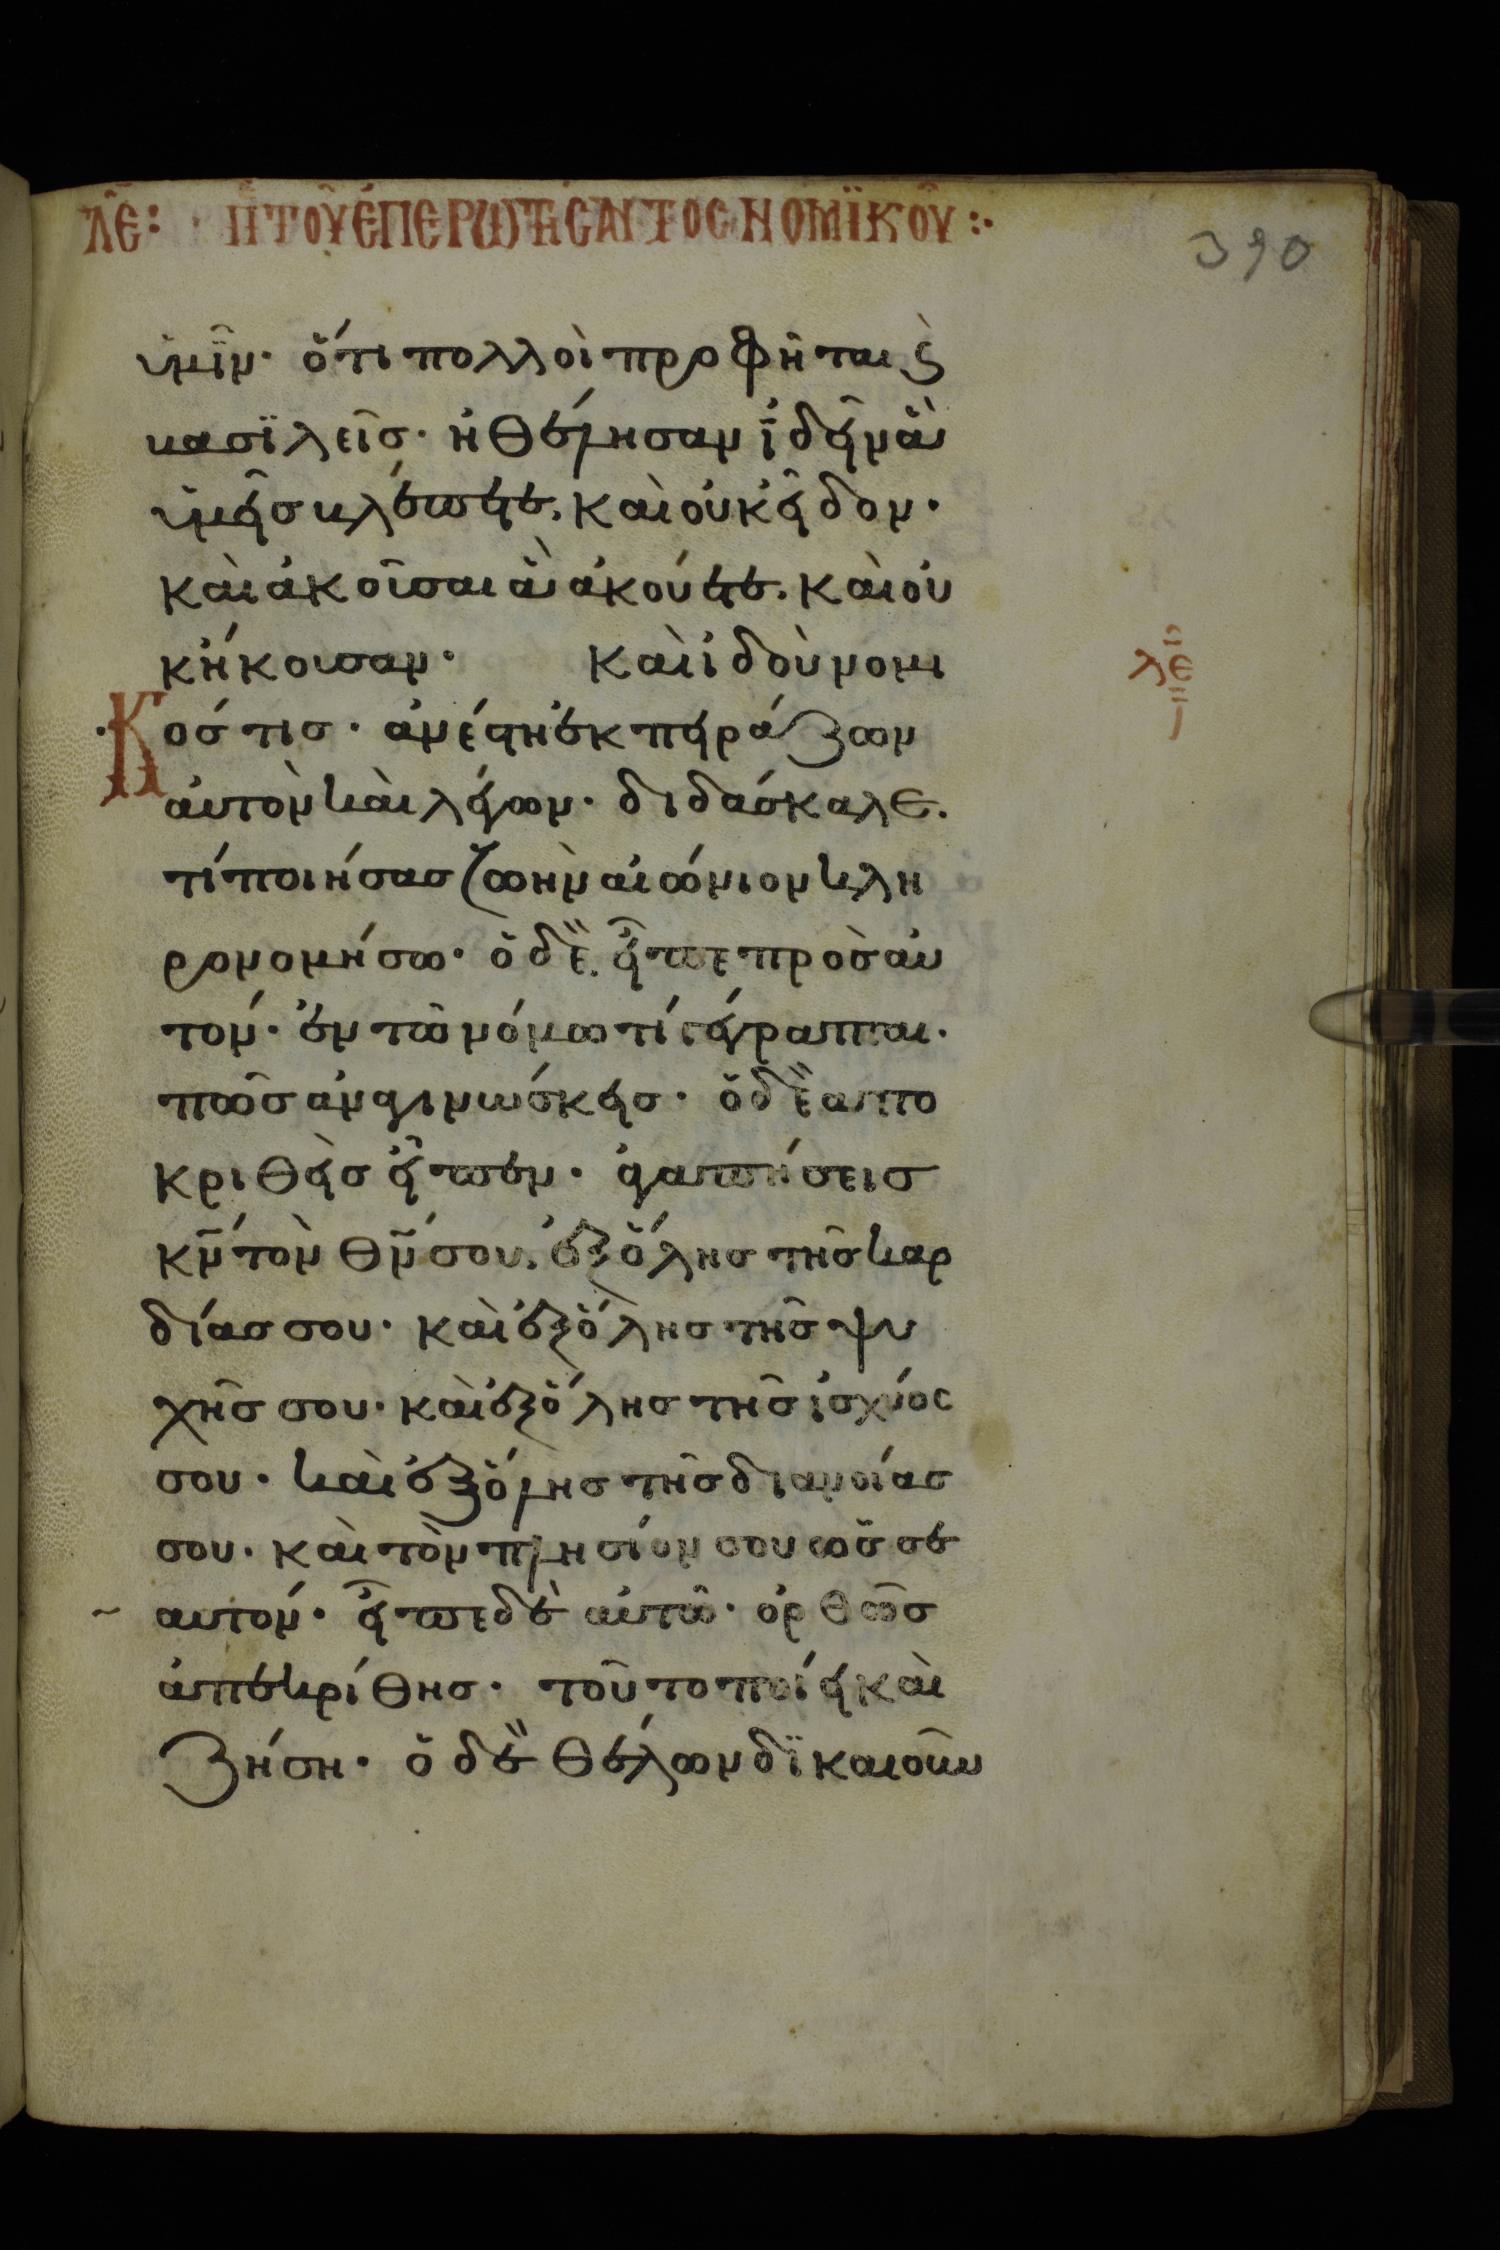 λε: π τοῦ ἐπερωτήσαντος νομϊκοῦ :·
390
ὑμῖν· ὅτι πολλοὶ προφῆται ϗ
βασϊλεῖσ· ἠθέλησαν ἰδεῖν ἃ
ὑμεῖσ βλέπετε. καὶ οὐκ εἶδον·
καὶ ἀκοῦσαι ἃ ἀκούετε. καὶ οὐ
κ ἤκουσαν· καὶ ἰδοὺ νομι
λε
Κόσ τισ· ἀνέστη ἐκπειράζων
αὐτὸν καὶ λέγων· διδάσκαλε.
τί ποιήσασ ζωὴν αἰώνιον κλη
ρονομήσω· ὁ δὲ. εἶπε πρὸσ αὐ
τόν· ἐν τῶ νόμω τί γέγραπται·
πῶσ ἀναγινώσκεισ· ὁ δὲ ἀπο
κριθεὶσ εἶπεν· ἀγαπήσεισ
κν τὸν θν σου. ἐξ ὅλησ τῆσ καρ
δίασ σου· καὶ ἐξ ὅλησ τῆσ ψυ
χῆσ σου· καὶ ἐξ ὅλησ τῆσ ἰσχύος
σου· καὶ ἐξ ὅλησ τῆσ διανοίασ
σου· καὶ τὸν πλησίον σου ὡσ σε
αυτόν· εἶπε δὲ αὐτῶ· ὀρθῶσ
ἀπεκρίθησ· τοῦτο ποίει καὶ
ζήση· ὁ δὲ θέλων δϊκαιοῦν